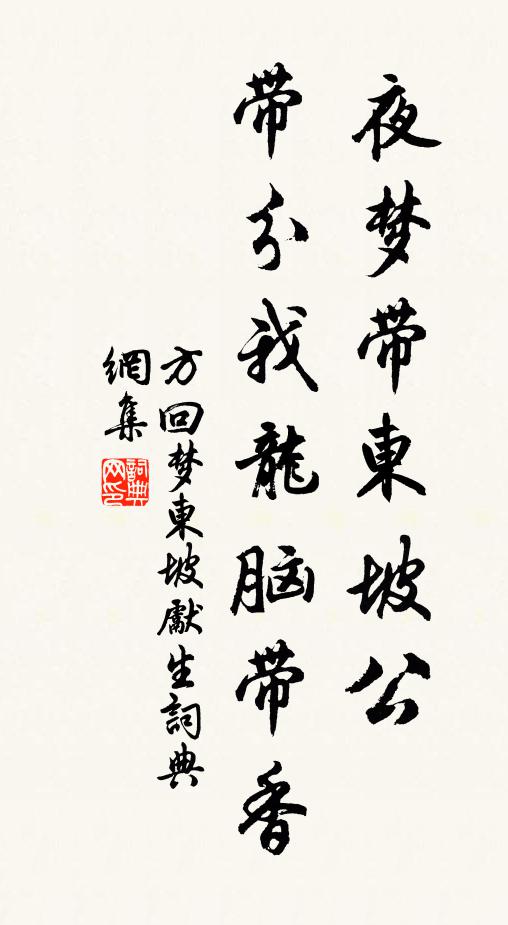 夜梦带東坡公
带分我龍脑带香
方回梦東坡獻生詞典
網集
詞典网印